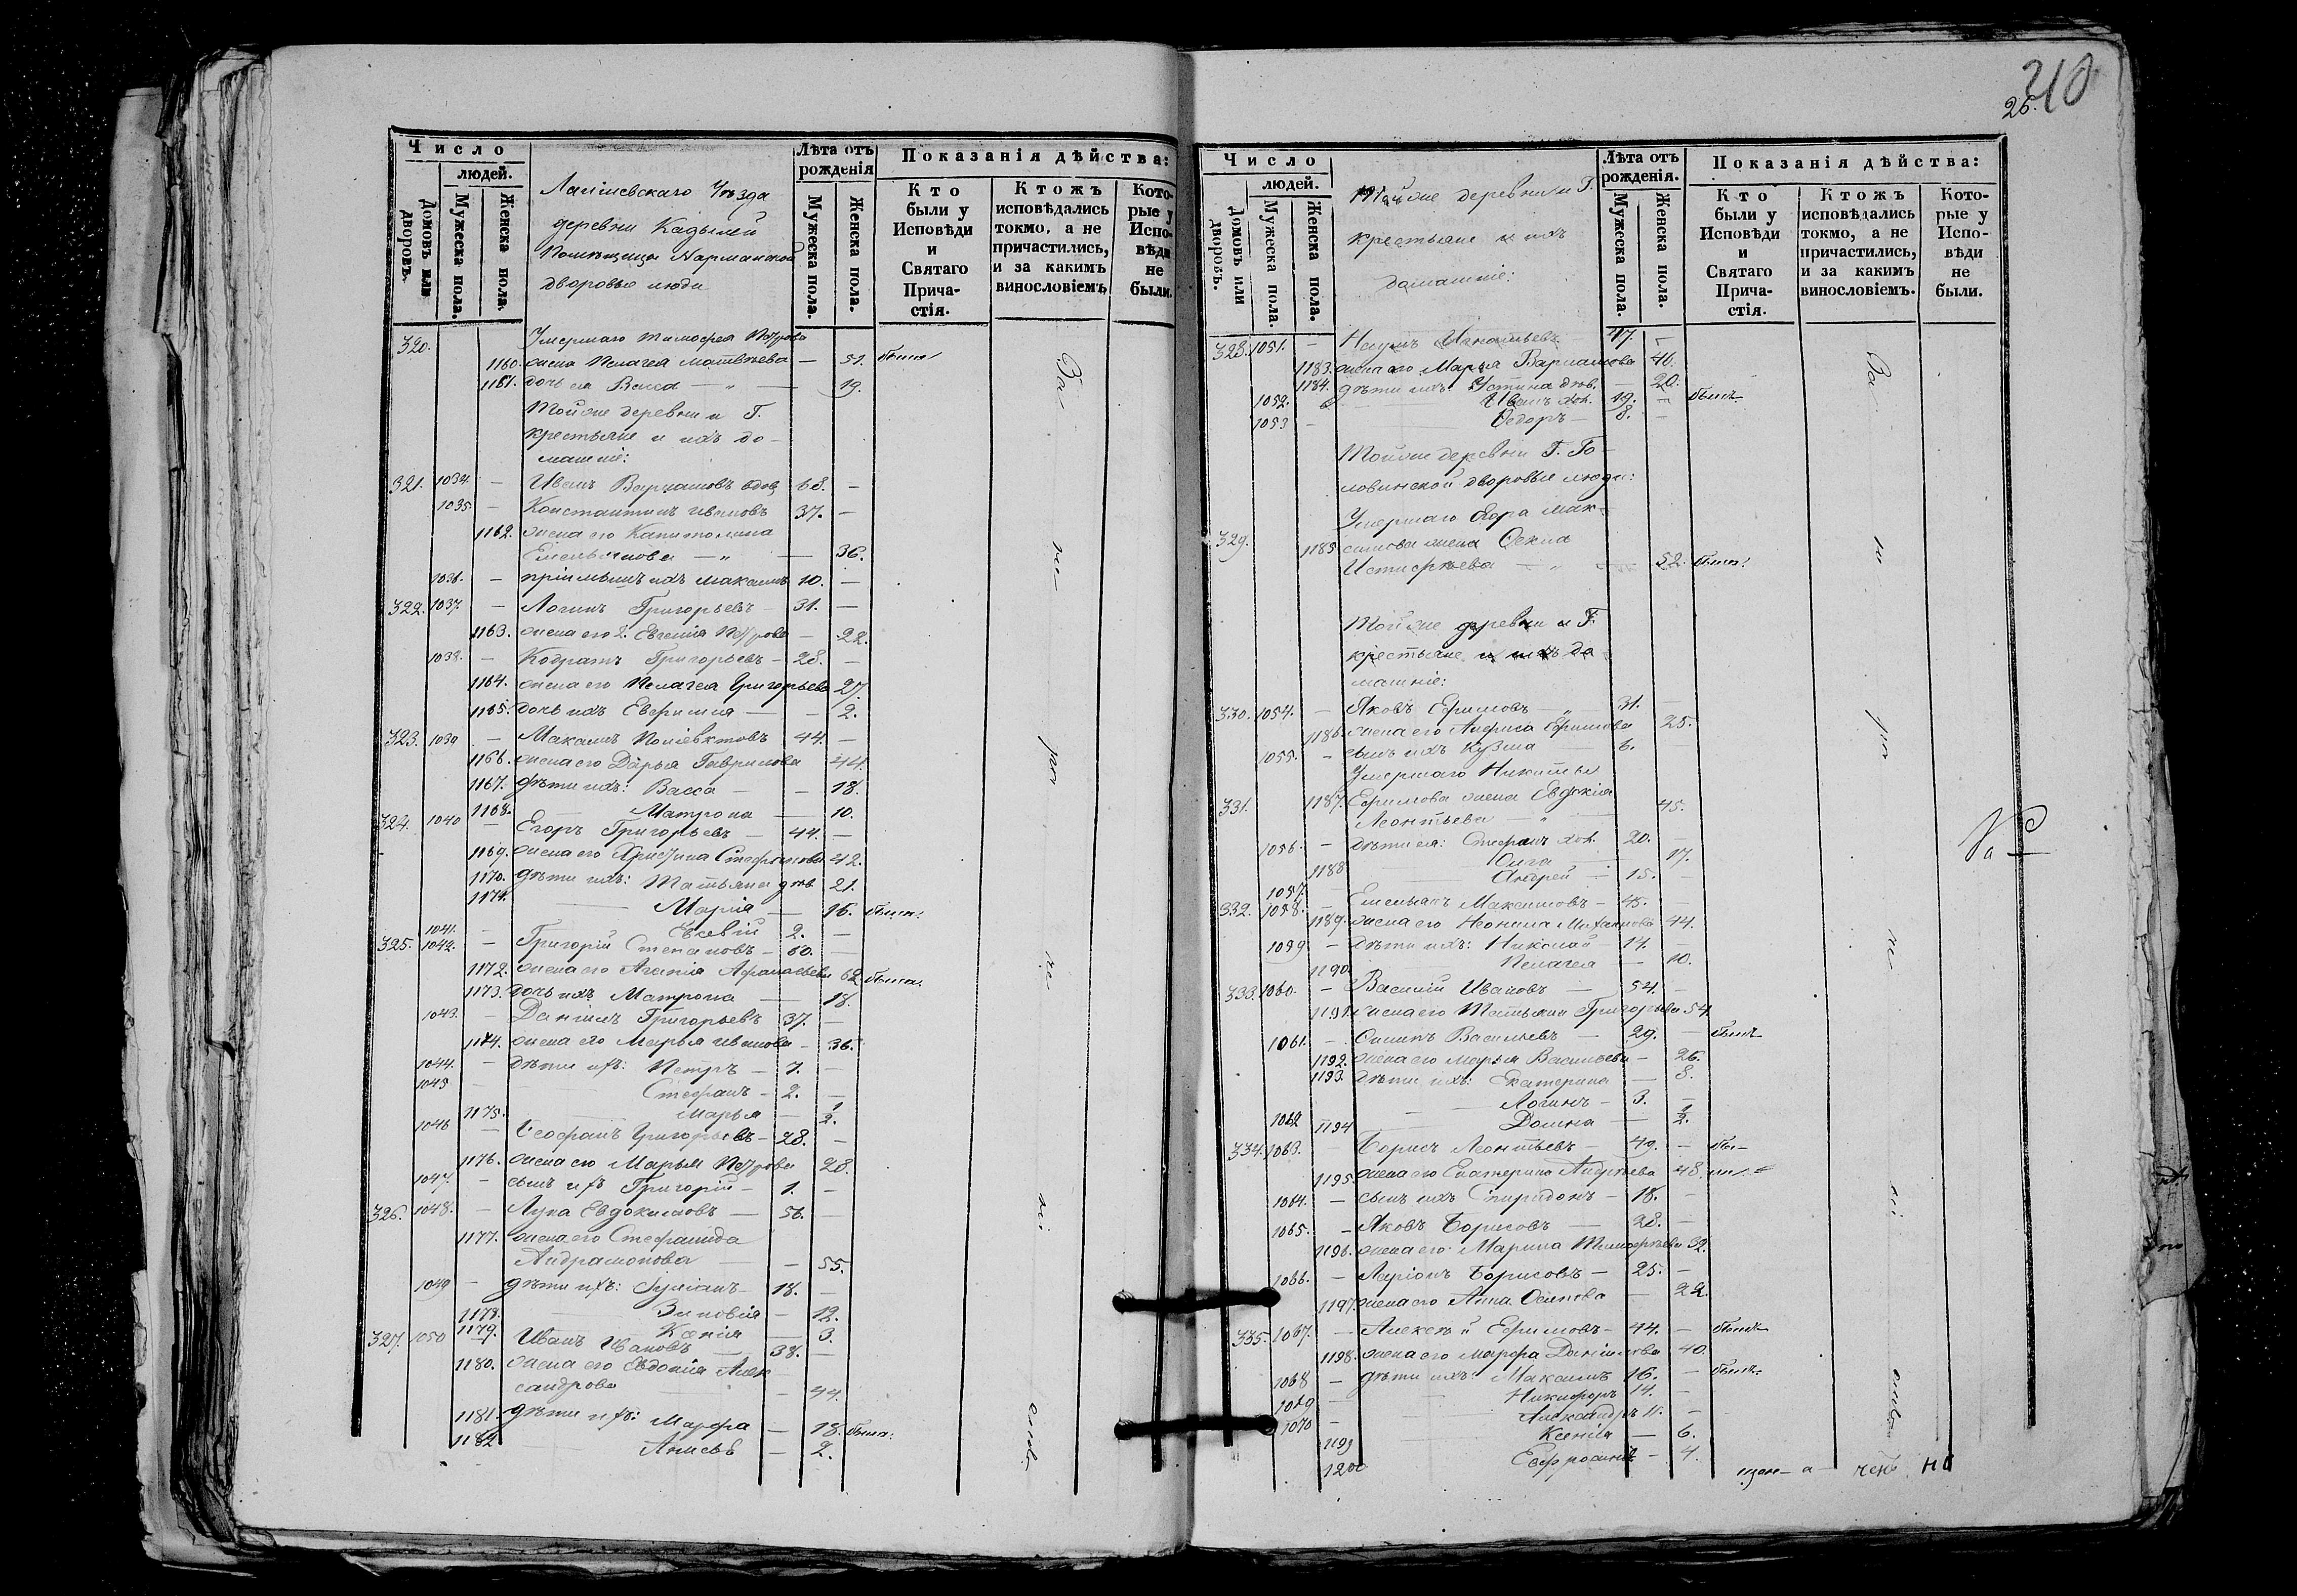 210
26.
Число
людей.
Домовъ или дворовъ.
Мужеска пола.
Женска пола.
Лаишевскаго Уѣзда
деревни Кадылей
Помѣщицы Нарманской
дворовые люди
Лѣта отъ рожденія
Мужеска пола.
Женска пола.
Показанія дѣйства:
Кто были у Исповѣди и Святаго Причастія.
Ктожъ исповѣдались токмо, а не причастились, и за какимъ винословіемъ.
Которые у Исповѣди не были.
320. Умершаго Тимофея Петрова
1160. жена Пелагея Матвѣева — 51. была
1161. дочь ея Васса — 19.
Тойже деревни и Г.
крестьяне и ихъ до-
машніе:
321. 1034. — Иванъ Варламовъ вдов. 68. —
1035. — Константинъ Ивановъ 37. —
1162. жена его Капитолина
Емельянова — 36.
1036. — пріимышъ ихъ Максимъ 10. —
322. 1037. — Логинъ Григорьевъ 31. —
1163. жена его 2. Евгенія Петрова — 22.
1038. — Кодратъ Григорьевъ — 28. —
1164. жена его Пелагея Григорьева 27.
1165. дочь ихъ Евфимія — 2.
323. 1039 — Максимъ Поліевктовъ 44. —
1166. жена его Дарья Гаврилова 44.
1167. дѣти ихъ: Васса — 18.
1168. Матрона — 10.
324. 1040 — Егоръ Григорьевъ — 44. —
1169. жена его Христина Стефанова 42.
1170. дѣти ихъ: Татьяна дѣв. 21.
1171. Марія — 16. была.
1041. — Евсевій 2. —
325. 1042. — Григорій Степановъ — 60. —
1172. жена его Агафія Афанасьева 62 была.
1173. дочь ихъ Матрона — 18.
1043. — Даніилъ Григорьевъ 37. —
1174. жена его Марья Иванова — 36.
1044. — дѣти ихъ: Петръ — 7. —
1045 — Стефанъ — 2. —
1175. Марья — 1/2.
1046 — Феофанъ Григорьевъ — 28. —
1176. жена его Марья Петрова 28.
1047. — сынъ ихъ Григорій — 1. —
326. 1048. — Лука Евдокимовъ — 56. —
1177. жена его Стефанида
Андрамонова — 55.
1049 — дѣти ихъ: Гуріанъ 18. —
1178. Зиновія — 12.
1179. Ксенія — 3.
327. 1050 Иванъ Ивановъ — 38. —
1180. жена его Евдокія Алек-
сандрова — 44.
1181. дѣти ихъ: Марфа — 18. была.
1182 Анисья — 2.
За не при не ніе
Число
людей.
Домовъ или дворовъ.
Мужеска пола.
Женска пола.
Тойже деревни и Г.
крестьяне и ихъ
домашніе:
Лѣта отъ рожденія.
Мужеска пола.
Женска пола.
Показанія дѣйства:
Кто были у Исповѣди и Святаго Причастія.
Ктожъ исповѣдались токмо, а не причастились, и за какимъ винословіемъ.
Которые у Исповѣди не были.
328. 1051. — Наумъ Игнатьевъ 47. —
1183. жена его Марья Варламова 46.
1184. дѣти ихъ: Устина дѣв. — 20.
1052. Иванъ хол. 19. — былъ
1053 — Ѳедоръ — 8. —
Тойже деревни Г. Го-
ловинской дворовые люди:
Умершаго Егора Мак-
329. 1185 симова жена Фекла
Истифѣева — 52. была.
Тойже деревни и Г.
крестьяне и ихъ до-
машніе:
330. 1054. — Яковъ Ефимовъ — 31. —
1186. жена его Анфиса Ефимова 25.
1055. — сынъ ихъ Кузма 6. —
Умершаго Никиты
331. 1187. Ефимова жена Евдокія
Леонтьева — 45.
1056. — дѣти ея: Стефанъ хол. 20. —
1188 Ольга — 17.
1057. Андрей — 15. —
332. 1058. — Емельянъ Максимовъ — 45. —
1189. жена его Неонила Михаилова 44.
1059 — дѣти ихъ: Николай 14. —
1190. Пелагея — 10.
333. 1060. — Василій Ивановъ — 54. —
1191. жена его Татьяна Григорьева 54.
1061. — Филипъ Васильевъ — 29. — былъ
1192. жена его Марья Васильева — 26.
1193. дѣти ихъ: Екатерина — 8.
1062 Логинъ — 3. —
1194 Домна — 1/2.
334. 1063. — Борисъ Леонтьевъ — 49. — бы-
1195. жена его Екатерина Андреева 48. ли
1064. — сынъ ихъ Спиридонъ — 18. —
1065. — Яковъ Борисовъ — 28. —
1196. жена его Марина Тимофѣева 32.
1066. — Ларіонъ Борисовъ — 25. —
1197. жена его Анна Осипова — 22.
335. 1067. — Алексѣй Ефимовъ — 44. — былъ
1198. жена его Марфа Данилова 40.
1068 — дѣти ихъ: Максимъ 16. — былъ
1069 — Никифоръ 14. —
1070 — Александръ 11. —
1199 Ксенія — 6.
1200 Евфросинія — 4.
За не при не ні